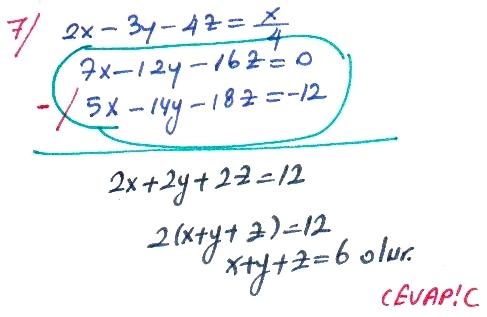 7/ 2x - 3y - 4z = x/4
7x - 12y - 16z = 0
-/ 5x - 14y - 18z = -12
2x + 2y + 2z = 12
2(x + y + z) = 12
x + y + z = 6 olur.
CEVAP! C